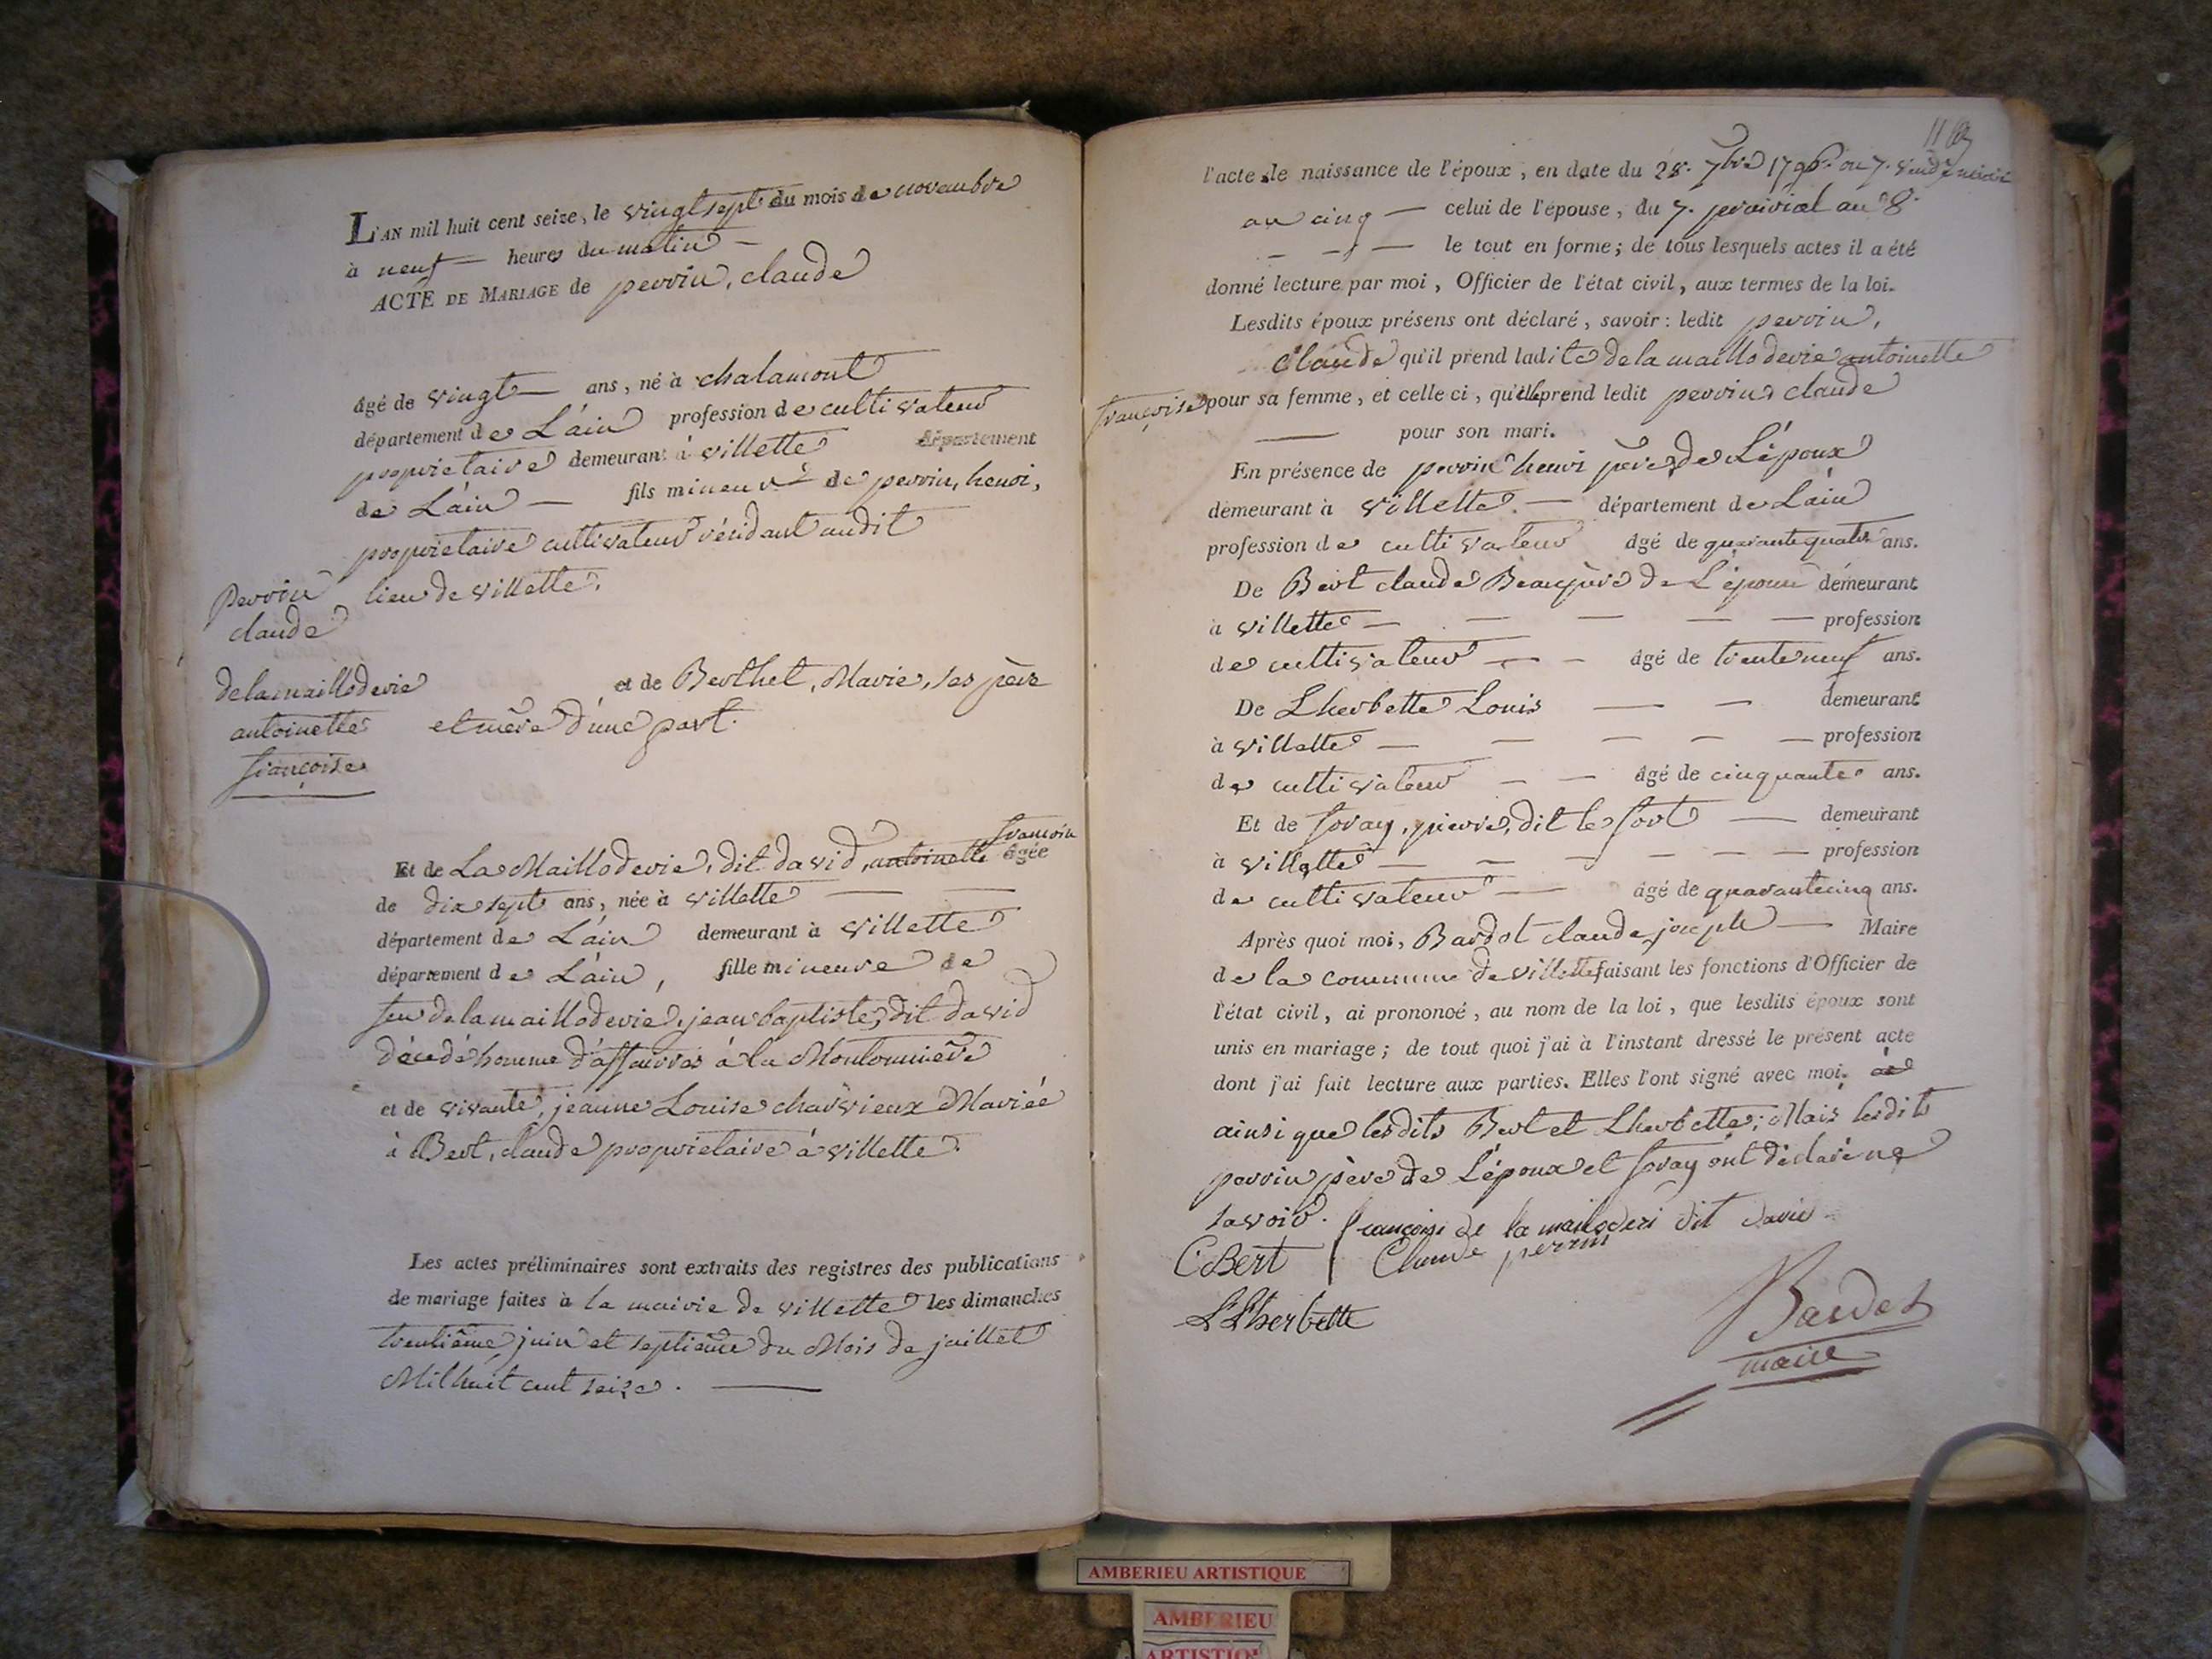 L'AN mil huit cent seize, le vingt sept du mois de novembre
à neuf heures du matin
ACTE DE MARIAGE de perrin, claude
âgé de vingt ans, né à chalamont
département de L'ain profession de cultivateur
proprietaire demeurant à villette département
de L'ain fils mineur de perrin, henri,
proprietaire cultivateur résidant audit
lieu de villette.
Perrin
claude
delamailloderie
antoinette
françoise
et de Berthet, Marie, ses père
et mère d'une part.
françoise
Et de La Mailloderie, dit david, antoinette âgée
de dix sept ans, née à villette
département de L'ain demeurant à villette
département de L'ain, fille mineure de
feu delamailloderie, jean baptiste, dit david
décédé homme d'affairres à la Moutonnière
et de vivante, jeanne Louise charvieux Mariée
à Bert, claude proprietaire à villette.
Les actes préliminaires sont extraits des registres des publications
de mariage faites à la mairie de villette les dimanches
trentième juin et septième du Mois de juillet
Mil huit cent seize.
l'acte de naissance de l'époux, en date du 28. 7bre 1796. ou 7. vendemiaire
an cinq celui de l'épouse, du 7. prairial an 8.
le tout en forme; de tous lesquels actes il a été
donné lecture par moi, Officier de l'état civil, aux termes de la loi.
Lesdits époux présens ont déclaré, savoir: ledit perrin,
Claude qu'il prend ladite delamailloderie antoinette
françoise pour sa femme, et celle ci, qu'elle prend ledit perrin claude
pour son mari.
En présence de perrin henri père de L'époux
demeurant à villette. département de L'ain
profession de cultivateur âgé de quarante quatre ans.
De Bert claude Beaupère de L'épouse demeurant
à villette profession
de cultivateur âgé de trente neuf ans.
De Lherbette Louis demeurant
à villette profession
de cultivateur âgé de cinquante ans.
Et de foray, pierre, dit le fort demeurant
à villette profession
de cultivateur âgé de quarante cinq ans.
Après quoi moi, Bardot claude joseph Maire
de la commune de villette faisant les fonctions d'Officier de
l'état civil, ai prononcé, au nom de la loi, que lesdits époux sont
unis en mariage; de tout quoi j'ai à l'instant dressé le présent acte
dont j'ai fait lecture aux parties. Elles l'ont signé avec moi.
ainsi que lesdits Bert et Lherbette; Mais lesdits
perrin père de L'époux et foray ont déclaré ne
savoir. françoise de la mailoderi dit david
C Bert Claude perrin
L Lherbette
Bardot
maire
AMBERIEU ARTISTIQUE
AMBERIEU
ARTISTIQUE